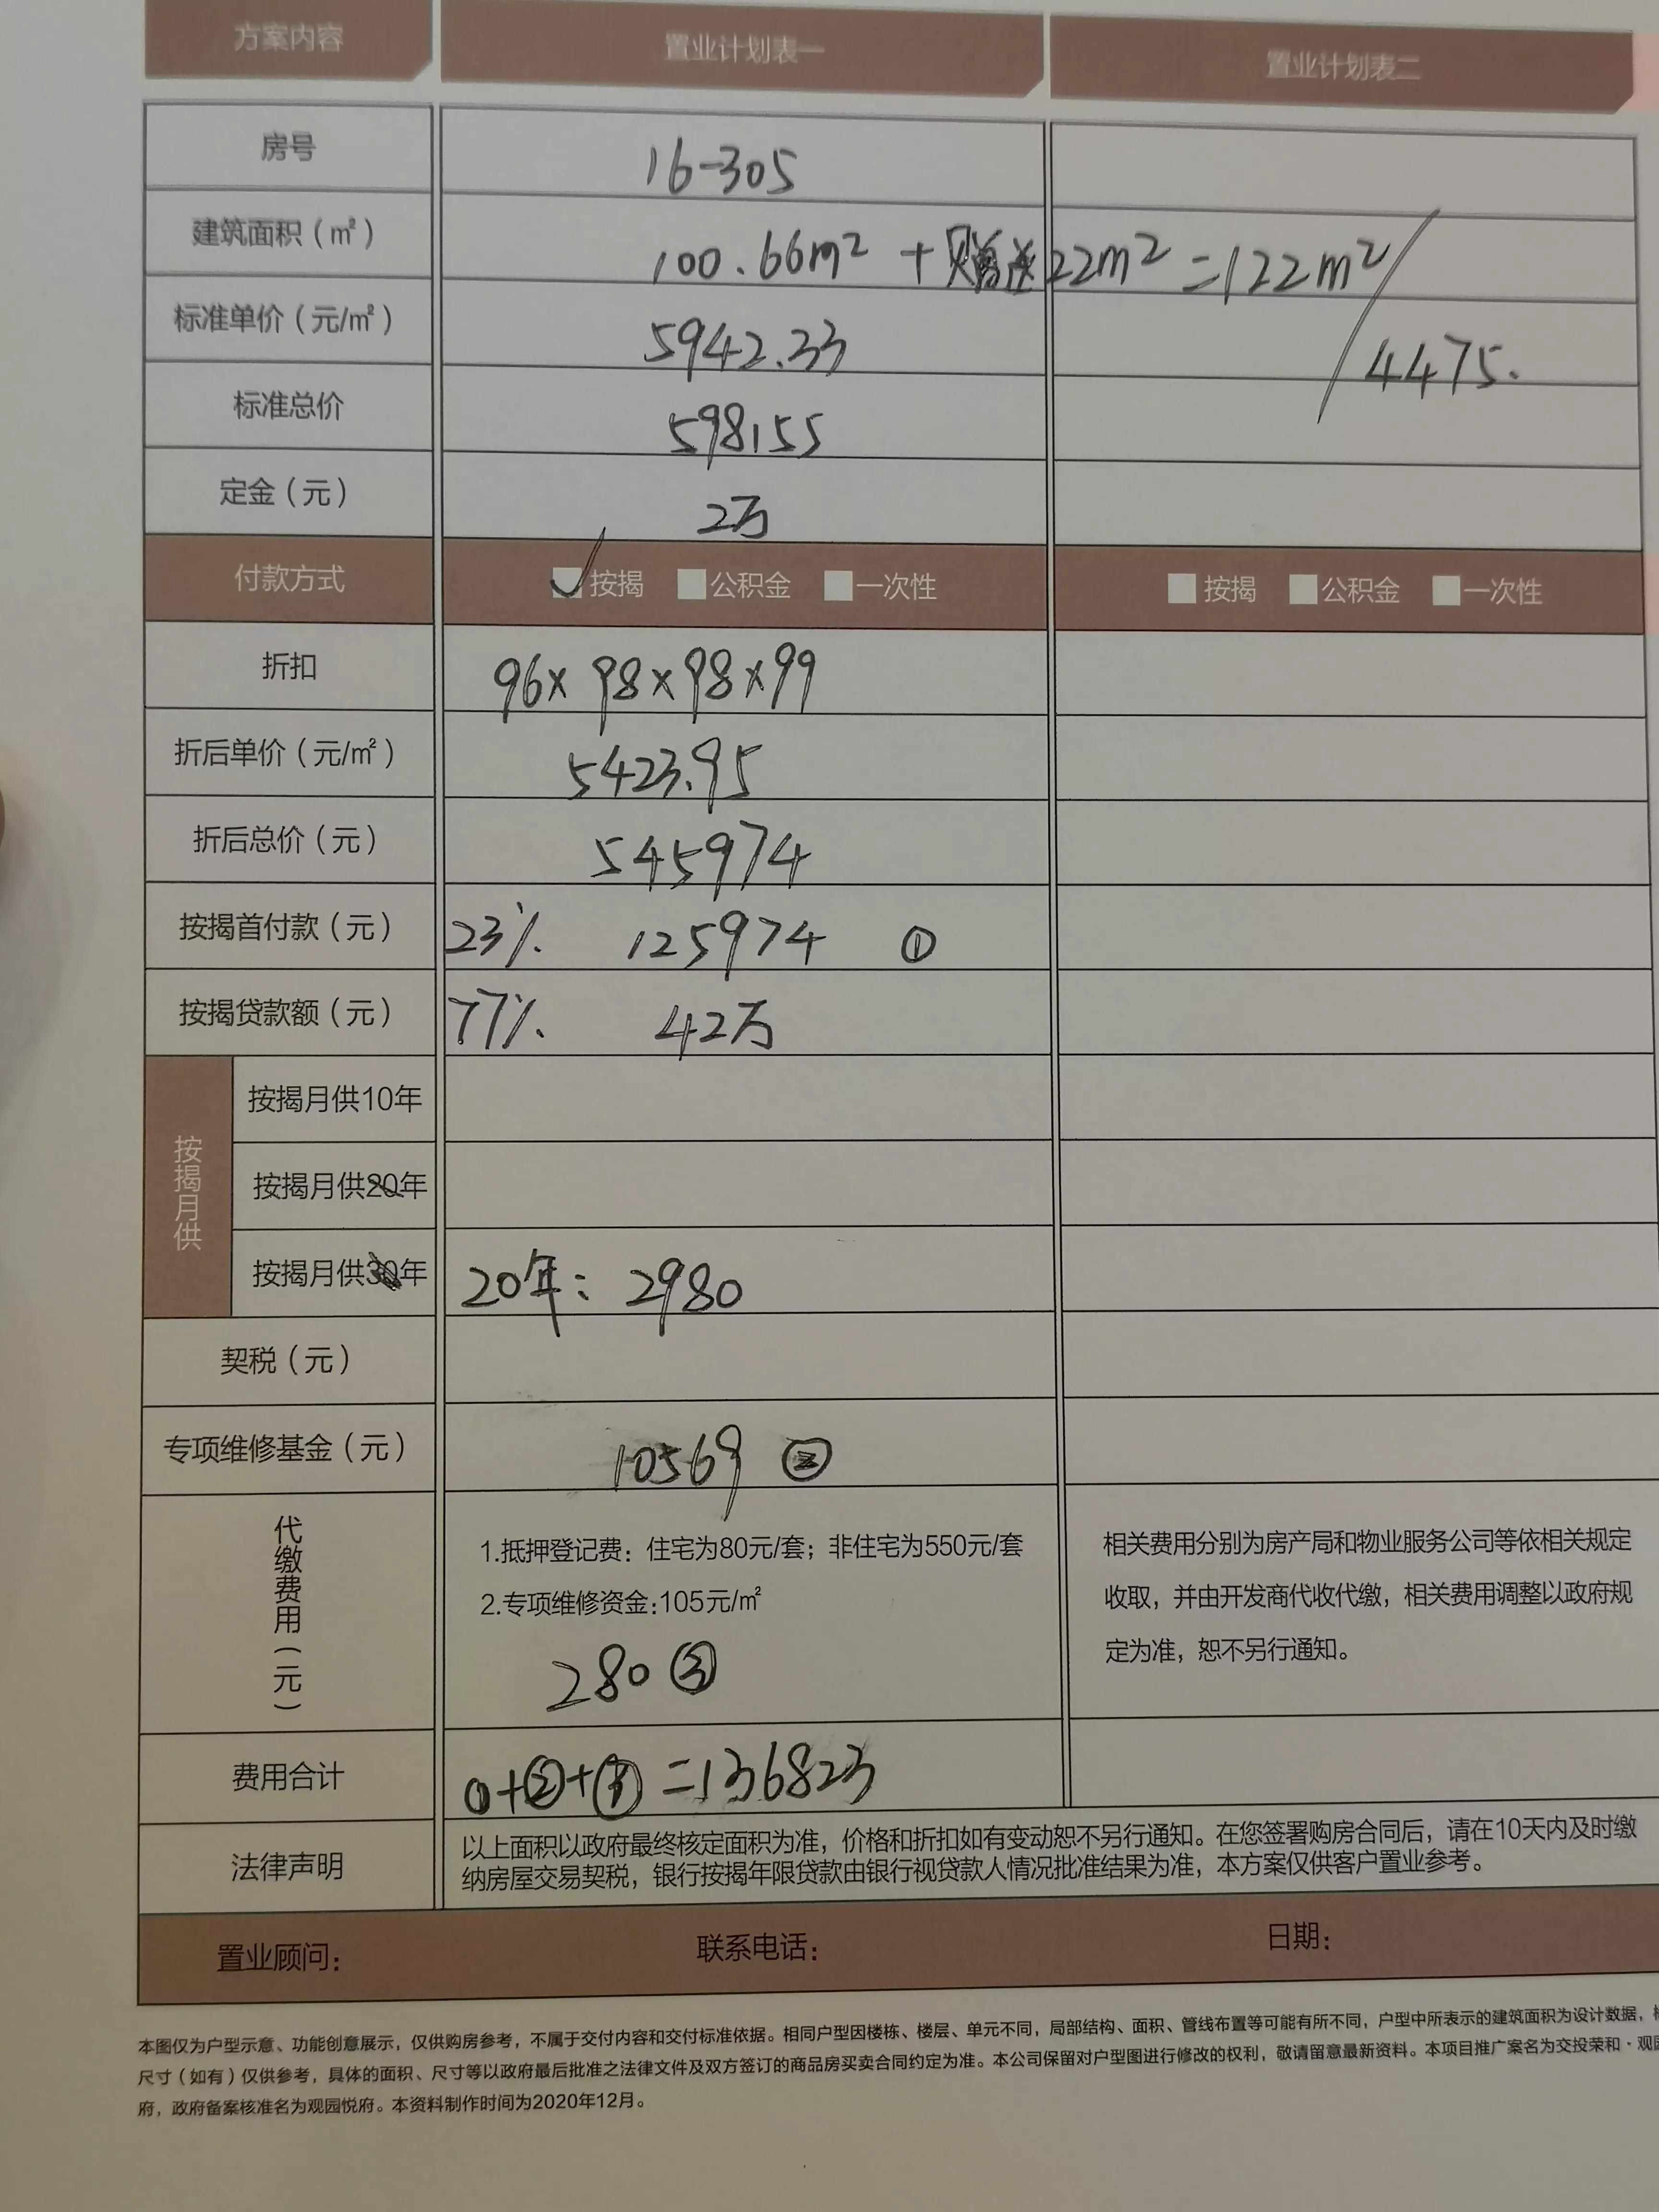 方案内容 置业计划表一 置业计划表二
房号 16-305
建筑面积（㎡） 100.66m² + 赠送22m² =122m²
标准单价（元/㎡） 5942.33 / 4475.
标准总价 598155
定金（元） 2万
付款方式 ✓按揭 公积金 一次性 按揭 公积金 一次性
折扣 96×98×98×99
折后单价（元/㎡） 5423.95
折后总价（元） 545974
按揭首付款（元） 23% 125974 ①
按揭贷款额（元） 77% 42万
按揭月供
按揭月供10年
按揭月供20年
按揭月供30年 20年：2980
契税（元）
专项维修基金（元） 10569 ②
代缴费用（元）
1.抵押登记费：住宅为80元/套；非住宅为550元/套
2.专项维修资金：105元/㎡
280 ③
相关费用分别为房产局和物业服务公司等依相关规定
收取，并由开发商代收代缴，相关费用调整以政府规
定为准，恕不另行通知。
费用合计 ①+②+③ =136823
法律声明
以上面积以政府最终核定面积为准，价格和折扣如有变动恕不另行通知。在您签署购房合同后，请在10天内及时缴
纳房屋交易契税，银行按揭年限贷款由银行视贷款人情况批准结果为准，本方案仅供客户置业参考。
置业顾问： 联系电话： 日期：
本图仅为户型示意、功能创意展示，仅供购房参考，不属于交付内容和交付标准依据。相同户型因楼栋、楼层、单元不同，局部结构、面积、管线布置等可能有所不同，户型中所表示的建筑面积为设计数据，
尺寸（如有）仅供参考，具体的面积、尺寸等以政府最后批准之法律文件及双方签订的商品房买卖合同约定为准。本公司保留对户型图进行修改的权利，敬请留意最新资料。本项目推广案名为交投荣和·观园
府，政府备案核准名为观园悦府。本资料制作时间为2020年12月。